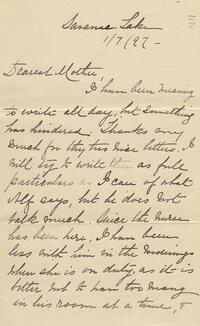 Saranac Lake
1/7/97-
Dearest Mother
I have been meaning
to write all day, but something
has hindered. Thanks very
much for thy two nice letters. I
will try to write thee as full
particulars as I can of what
Alf says, but he does not
talk much. Since the nurse
has been here, I have been
less with him in the mornings
when she is on duty, as it is
better not to have too many
in his room at a time, &